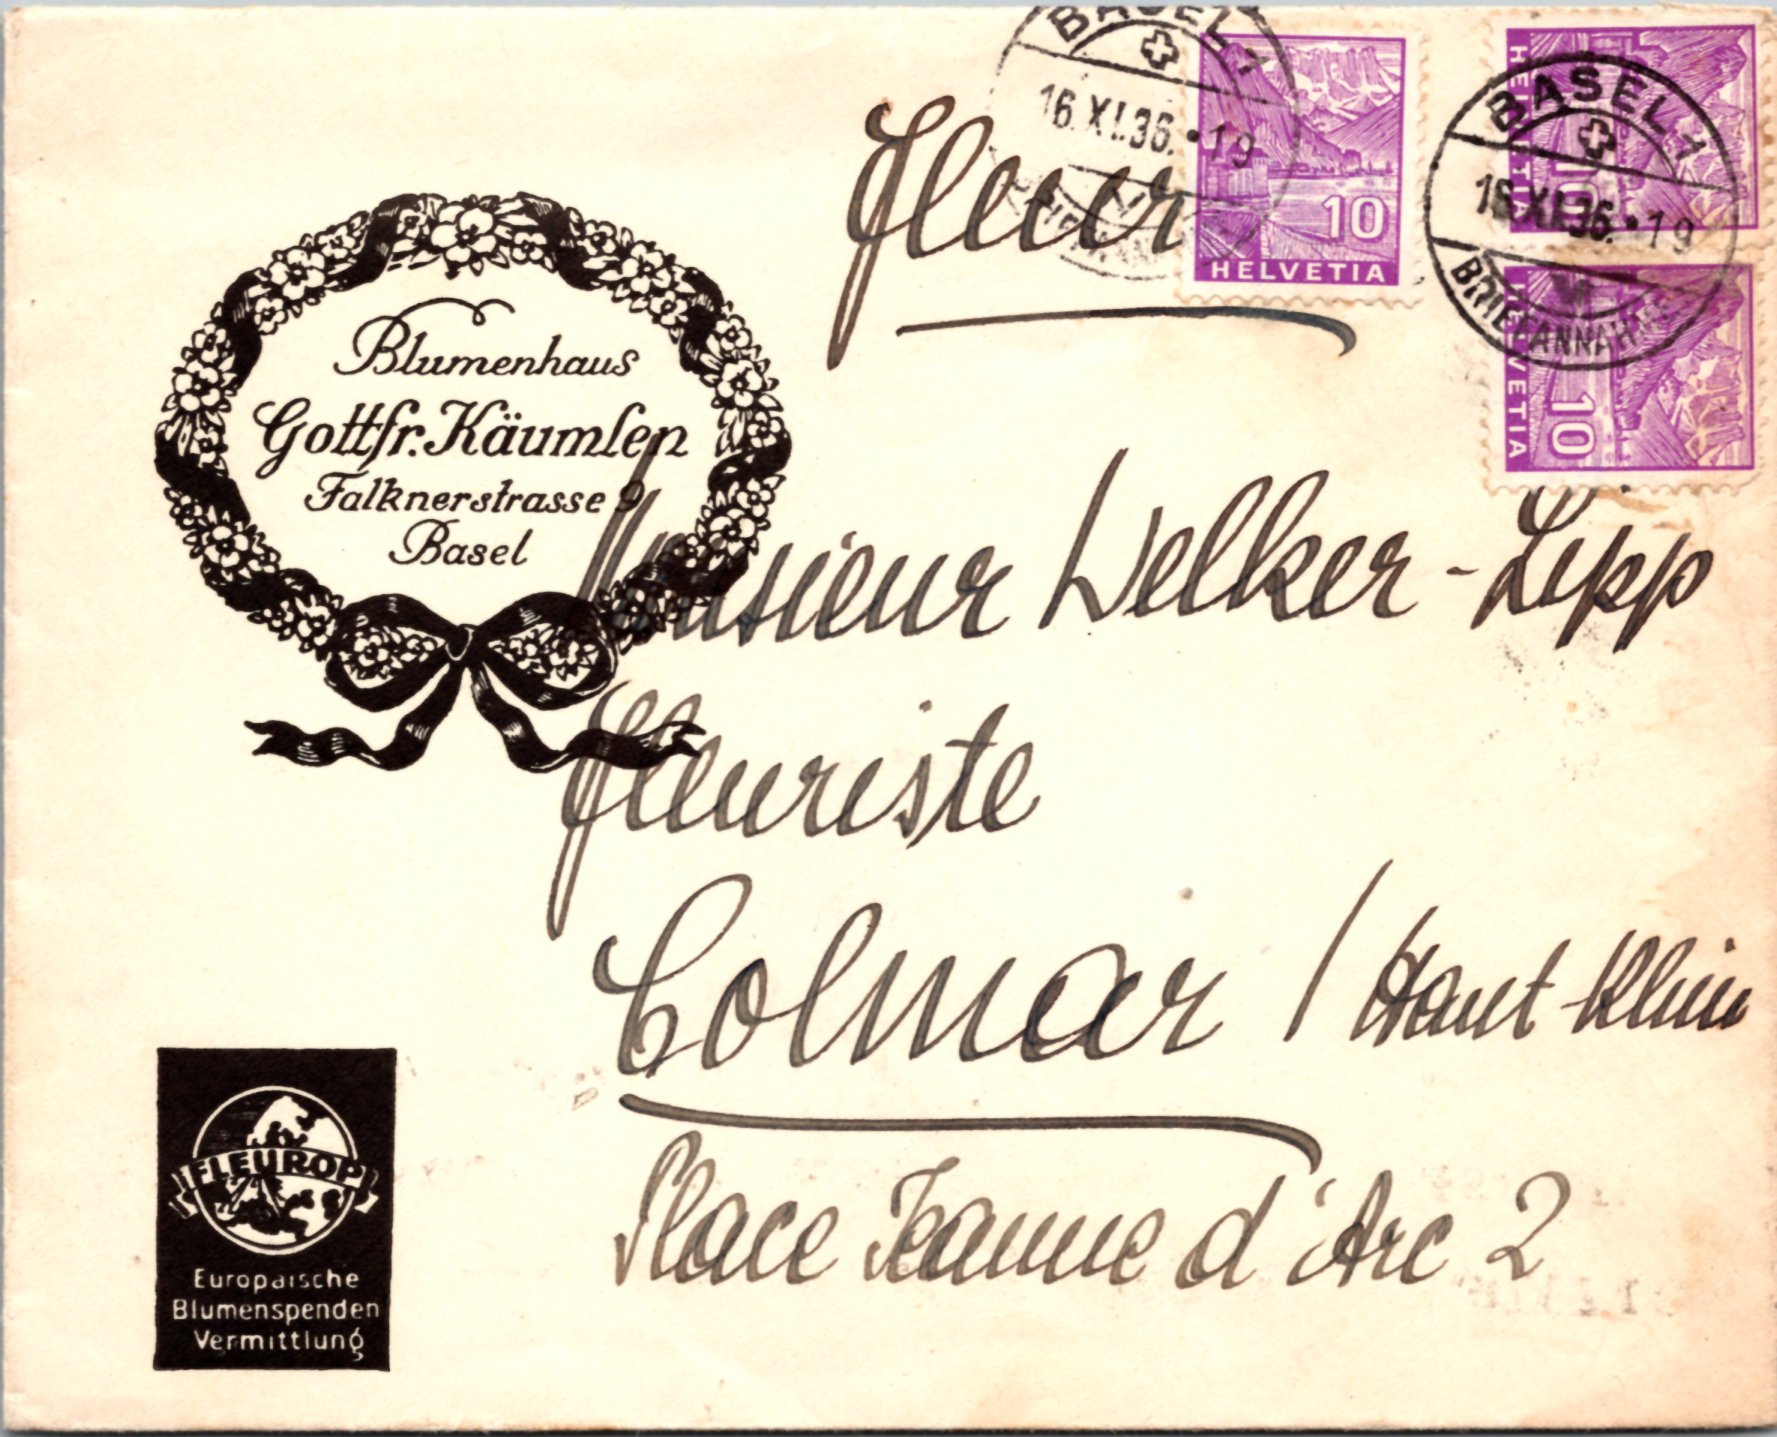 BASEL 1
16.XI.36.•19
HELVETIA
10
BASEL 1
16.XI.36.•19
BRIEFANNAHME
HELVETIA
10
HELVETIA
10
Fleur
Blumenhaus
Gottfr. Käumlen
Falknerstrasse 9
Basel
Monsieur Welker-Lipp
fleuriste
Colmar / Haut-Rhin
Place Jeanne d'Arc 2
FLEUROP
Europäische
Blumenspenden
Vermittlung